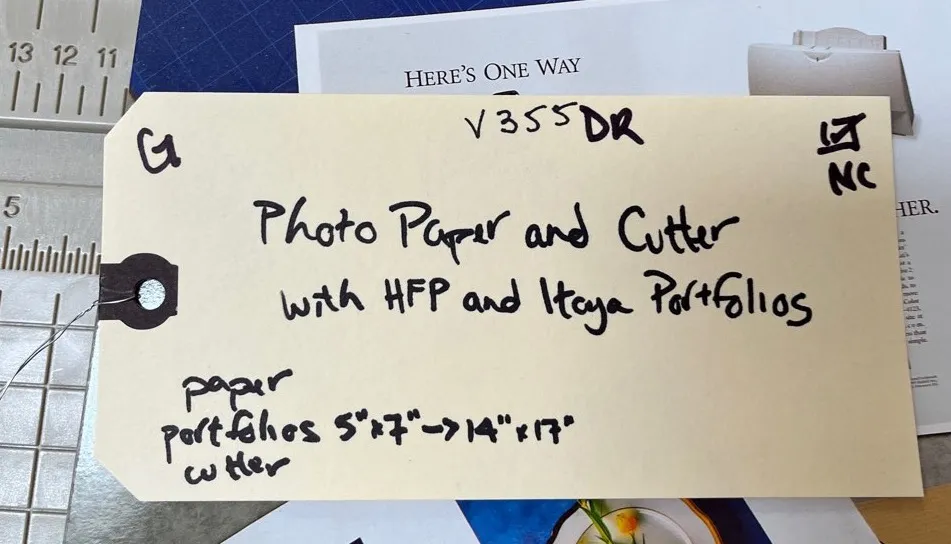 13 12 11
HERE'S ONE WAY
G
V355DR
NC
5
HER.
Photo Paper and Cutter
with HFP and Itoya Portfolios
paper
portfolios 5"x7"->14"x17"
cutter